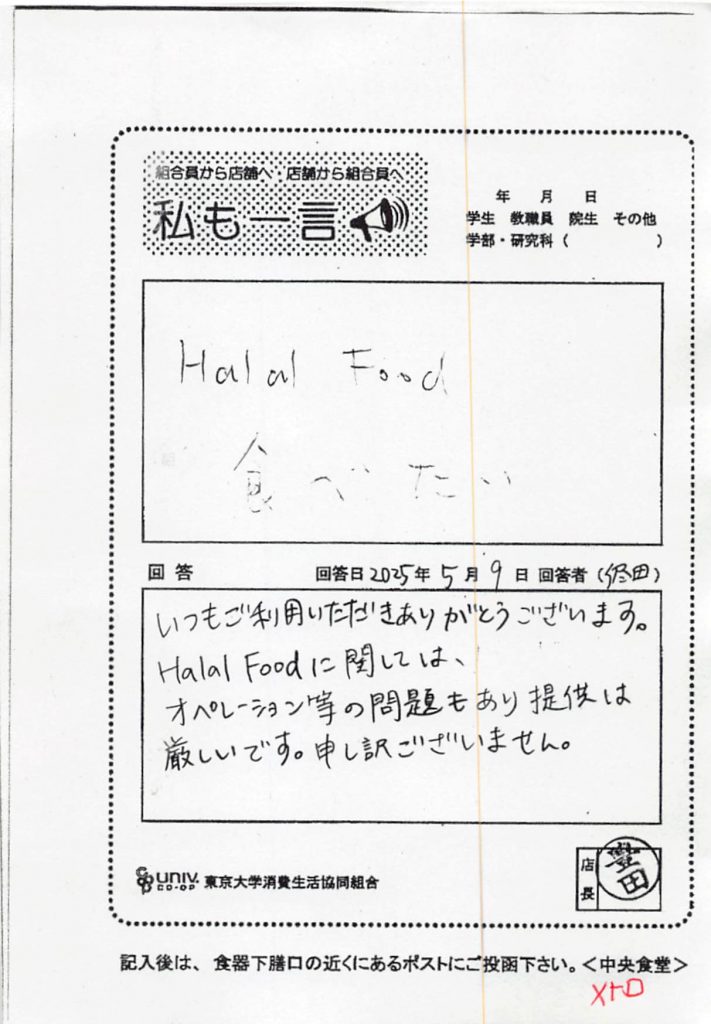 組合員から店舗へ・店舗から組合員へ
私も一言
年 月 日
学生 教職員 院生 その他
学部・研究科( )
Halal Food
食べたい
回答 回答日2025年5月9日 回答者(終田)
いつもご利用いただきありがとうございます。
Halal Foodに関しては、
オペレーション等の問題もあり提供は
厳しいです。申し訳ございません。
CO-OP UNIV. CO-OP 東京大学消費生活協同組合
店長 豊田
記入後は、食器下膳口の近くにあるポストにご投函下さい。<中央食堂>